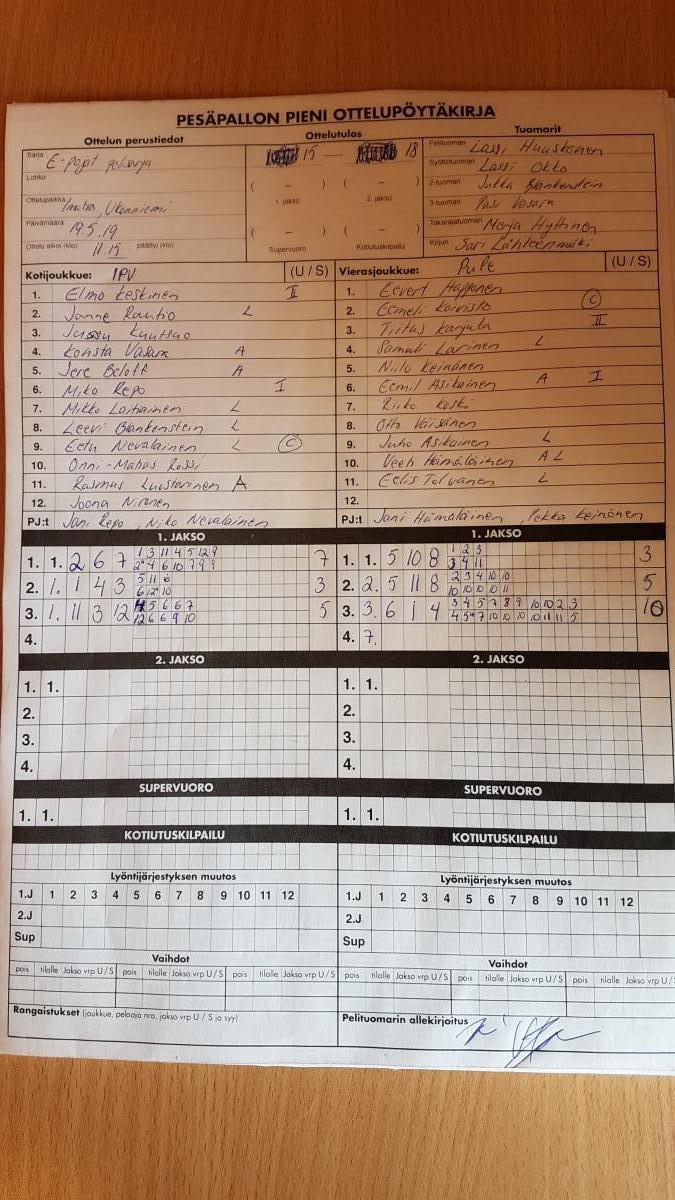 PESÄPALLON PIENI OTTELUPÖYTÄKIRJA
Ottelun perustiedot
Ottelutulos
Tuomarit
Sarja E-pojat
15 – 18
Pelituomari Lassi Huuskonen
Lohko
Syöttötuomari Lassi Okko
( – ) ( – )
2-tuomari Jukka Blankenstein
Ottelupaikka Imatra, Ukonniemi
1. jakso 2. jakso
3-tuomari Pasi Vasara
Päivämäärä 19.5.19
( – ) ( – )
Takarajatuomari Merja Hyttinen
Ottelu alkoi (klo) 11.15 päättyi (klo)
Supervuoro Kotiutuskilpailu
Kirjuri Sari Lähteenmäki
Kotijoukkue: IPV (U / S)
1. Elmo Keskinen II
2. Janne Rautio L
3. Jussu Kuutsuo
4. Konsta Vasara A
5. Jere Beloff A
6. Miko Repo I
7. Mikko Laitiainen L
8. Leevi Blankenstein L
9. Eetu Nevalainen L C
10. Onni-Matias Rossi
11. Rasmus Luostarinen A
12. Joona Nironen
PJ:t Jani Repo, Niko Nevalainen
Vierasjoukkue: PuPe (U / S)
1. Eevert Happonen
2. Eemeli Koivisto C
3. Tiitus Karjula II
4. Samuli Larinen L
5. Niilo Keinänen
6. Eemil Asikainen A I
7. Riiko Keski
8. Otto Väisänen
9. Juho Asikainen L
10. Veeti Hämäläinen A L
11. Eelis Tolvanen L
12.
PJ:t Jani Hämäläinen, Pekka Keinänen
1. JAKSO
1. 1. 2 6 7 1 3 11 4 5 12 9 7
2 4 6 10 7 9 9
2. 1. 1 4 3 5 11 6 3
6 12 10
3. 1. 11 3 12 4 5 6 6 7 5
12 6 6 9 10
4.
1. JAKSO
1. 1. 5 10 8 1 2 3 3
3 4 11
2. 2. 5 11 8 2 3 4 10 10 5
10 10 10 10 11
3. 3. 6 1 4 3 4 5 7 8 9 10 10 2 3 10
4 5 7 10 10 10 10 11 11 5
4. 7.
2. JAKSO
1. 1.
2.
3.
4.
2. JAKSO
1. 1.
2.
3.
4.
SUPERVUORO
1. 1.
SUPERVUORO
1. 1.
KOTIUTUSKILPAILU
KOTIUTUSKILPAILU
Lyöntijärjestyksen muutos
1.J 1 2 3 4 5 6 7 8 9 10 11 12
2.J
Sup
Lyöntijärjestyksen muutos
1.J 1 2 3 4 5 6 7 8 9 10 11 12
2.J
Sup
Vaihdot
pois tilalle Jakso vrp U / S pois tilalle Jakso vrp U / S pois tilalle Jakso vrp U / S
Vaihdot
pois tilalle Jakso vrp U / S pois tilalle Jakso vrp U / S pois tilalle Jakso vrp U /
Rangaistukset (joukkue, pelaaja nro, jakso vrp U / S ja syy)
Pelituomarin allekirjoitus